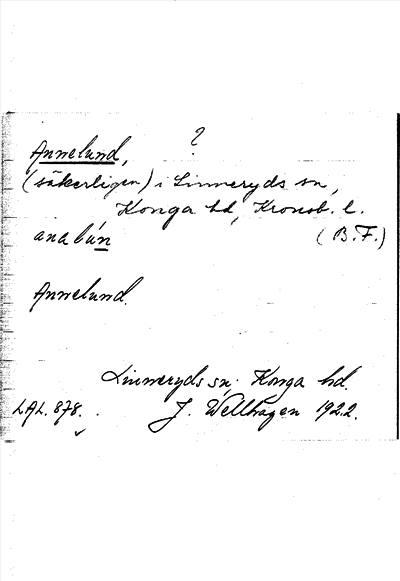 ?
Annelund,
(säkerligen) i Linneryds sn,
Konga hd, Kronob. l.
analún (B.F.)
Annelund.
Linneryds sn, Konga hd.
LAL. 878. J. Wellhagen 1922.